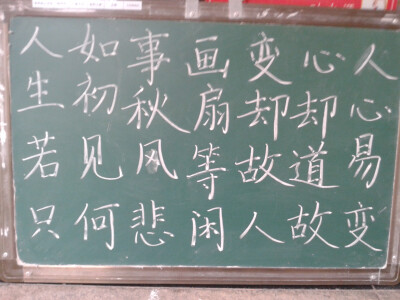 人生若只
如初见何
事秋风悲
画扇等闲
变却故人
心却道故
人心易变